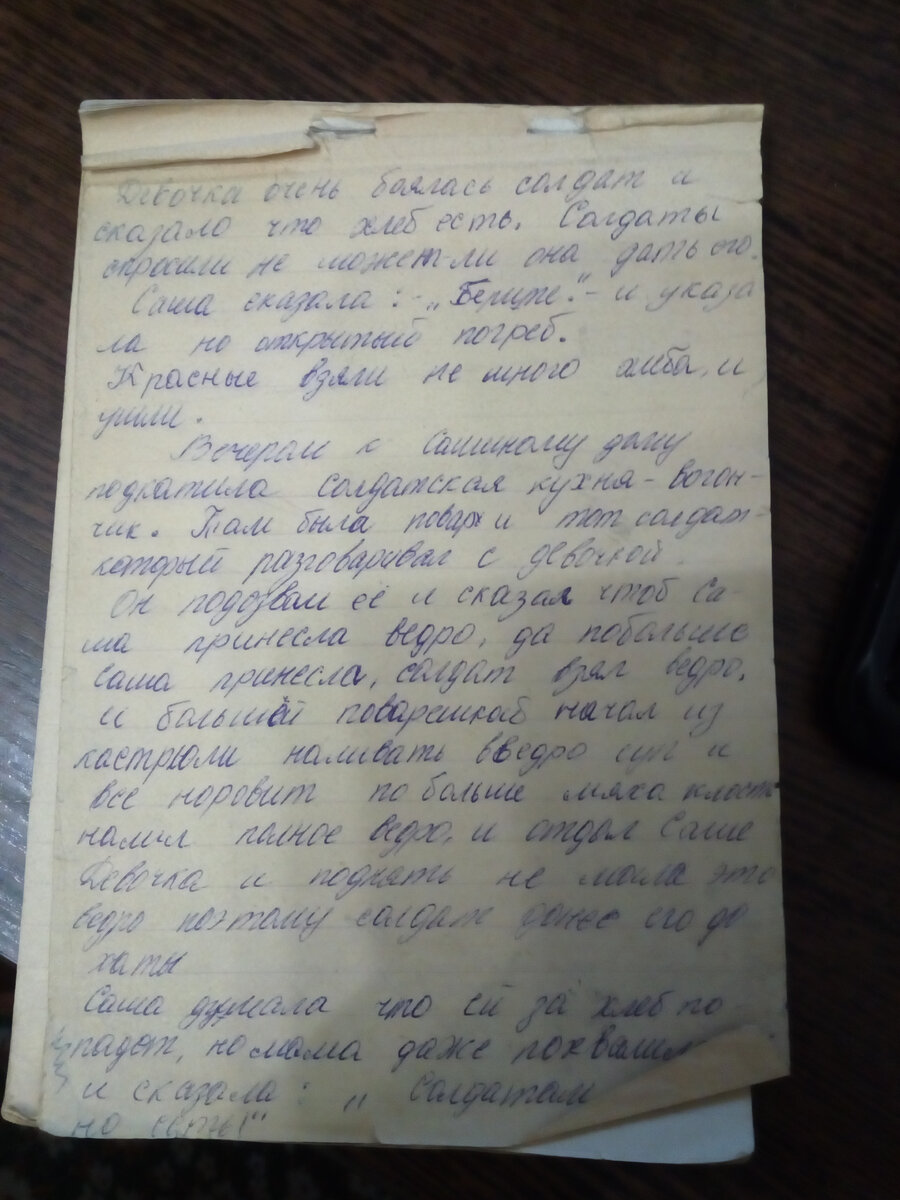 Девочка очень боялась солдат и
сказало что хлеб есть. Солдаты
спросили не может-ли она дать его.
Саша сказала: - „Берите." - и указа
ла но открытый погреб.
Красные взяли не много хлеба, и
ушли.
Вечером к Сашиному дому
подкатила солдатская кухня - вогон-
чик. Там была повар и тот солдат-
который разговаривал с девочкой.
Он подозвал её и сказал чтоб Са-
ша принесла ведро, да побольше
Саша принесла, солдат взял ведро,
и большой поварешкой начал из
кастрюли наливать введро суп и
все норовит по больше мяса класть
налил полное ведро, и отдал Саше
Девочка и поднять не могла это
ведро поэтому солдат донес его до
хаты
Саша думала что ей за хлеб по-
падет, но мама даже похвалила
и сказала: „Солдатам